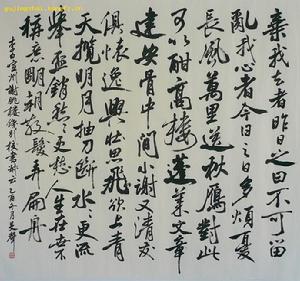 棄我去者昨日之日不可留
亂我心者今日之日多煩憂
長風萬里送秋雁對此
可以酣高樓蓬萊文章
建安骨中間小謝又清發
俱懷逸興壯思飛欲上青
天攬明月抽刀斷水水更流
舉杯銷愁愁更愁人生在世不
稱意明朝散髮弄扁舟
李白宣州謝朓樓餞別校書叔雲 乙酉